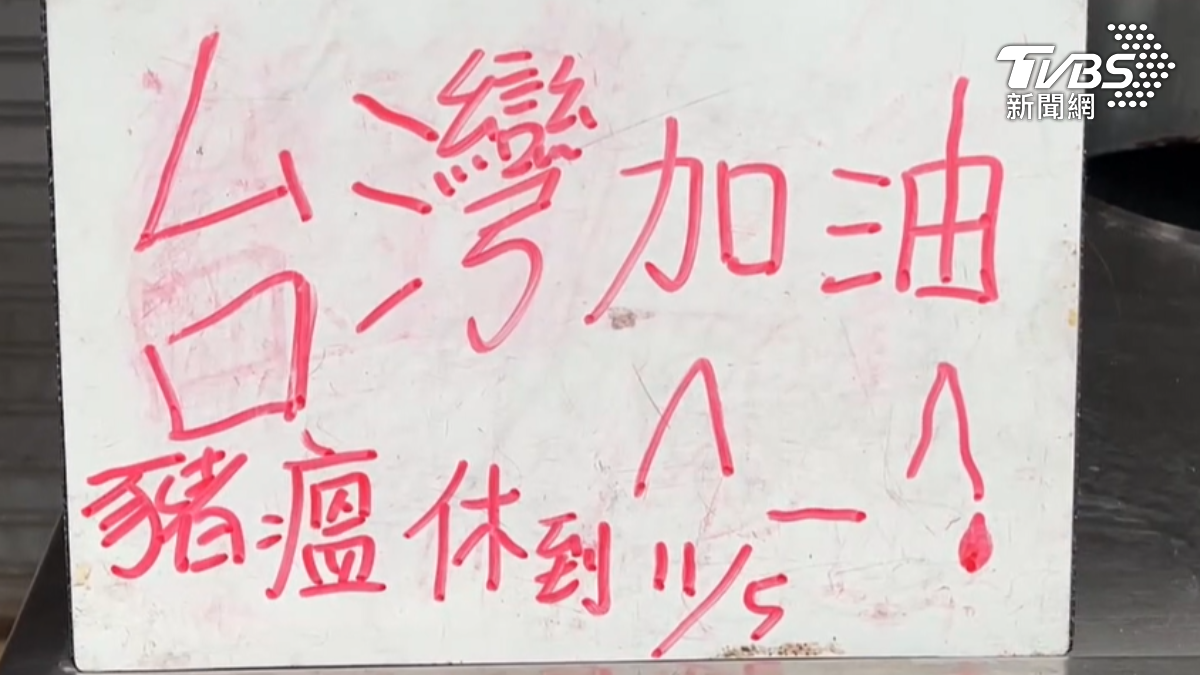 TVBS
新聞網
台灣加油
豬瘟休到11/5